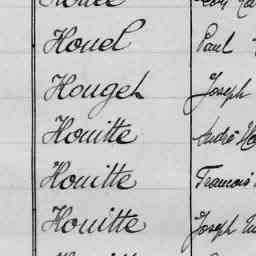 Houel Paul
Houget Joseph
Houitte André
Houitte François
Houitte Joseph